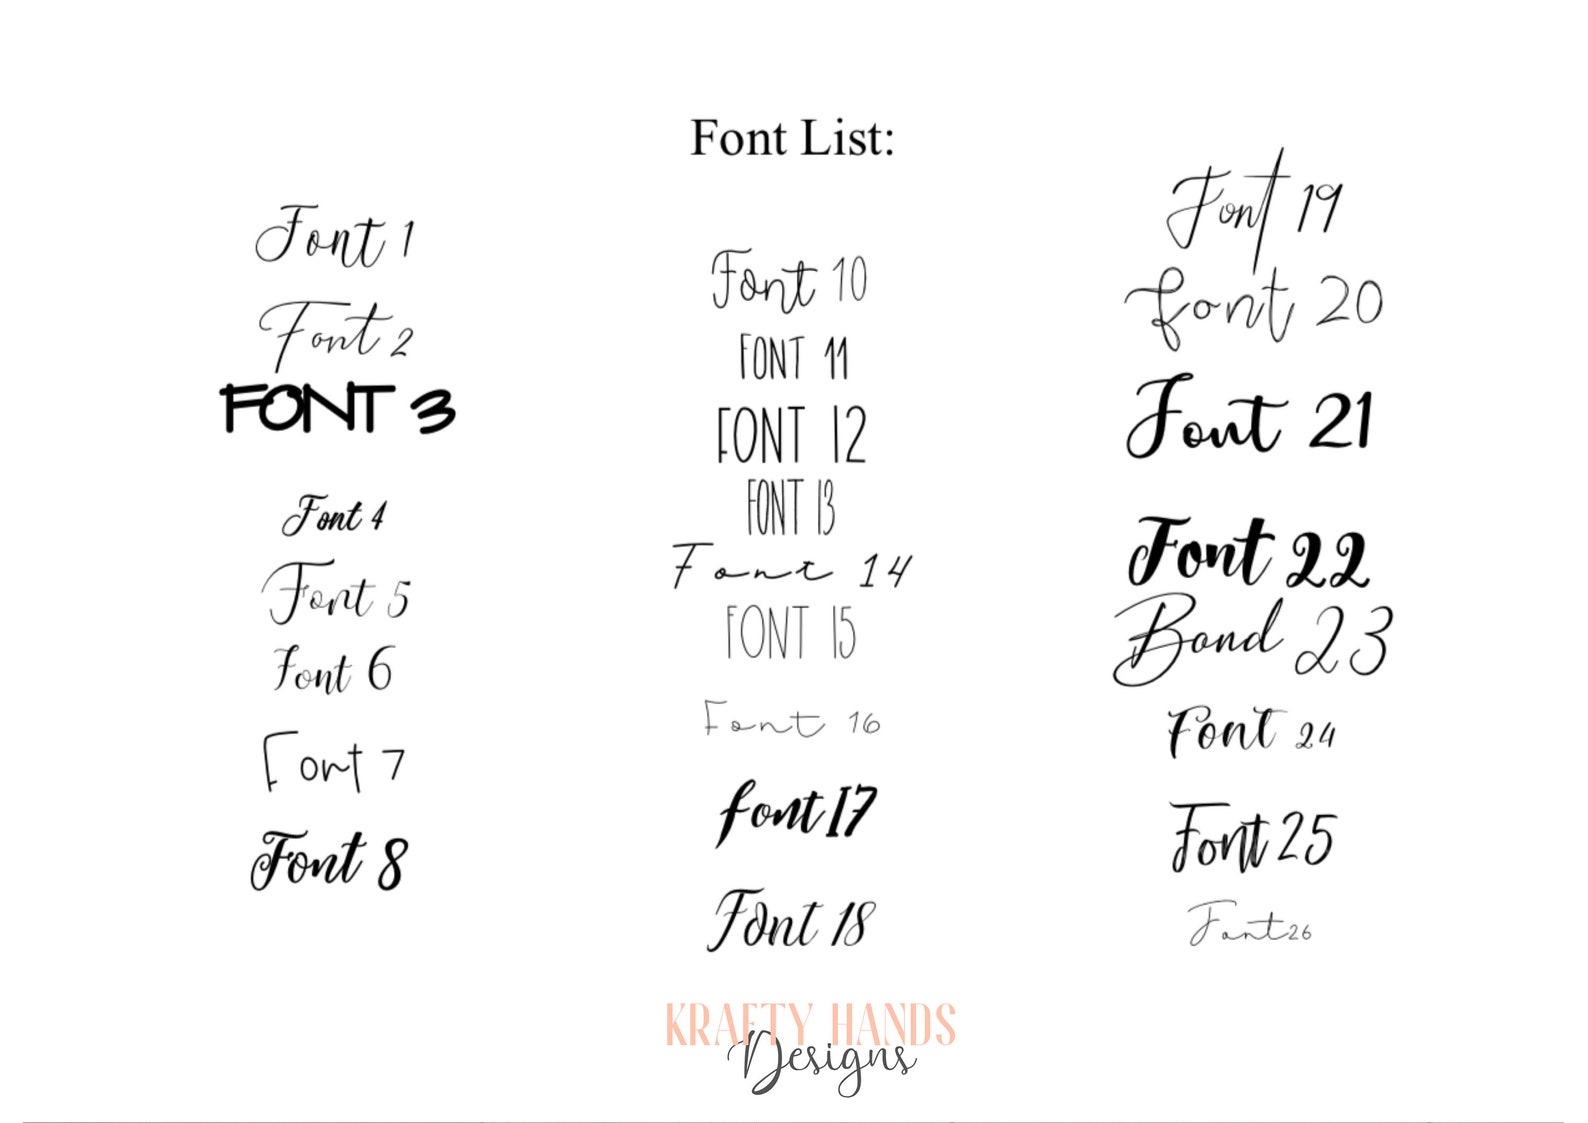 Font List:
Font 1
Font 2
FONT 3
Font 4
Font 5
Font 6
Font 7
Font 8
Font 10
FONT 11
FONT 12
FONT 13
Font 14
FONT 15
Font 16
font 17
Font 18
Font 19
font 20
Font 21
Font 22
Bond 23
Font 24
Font 25
Font 26
KRAFTY HANDS
Designs